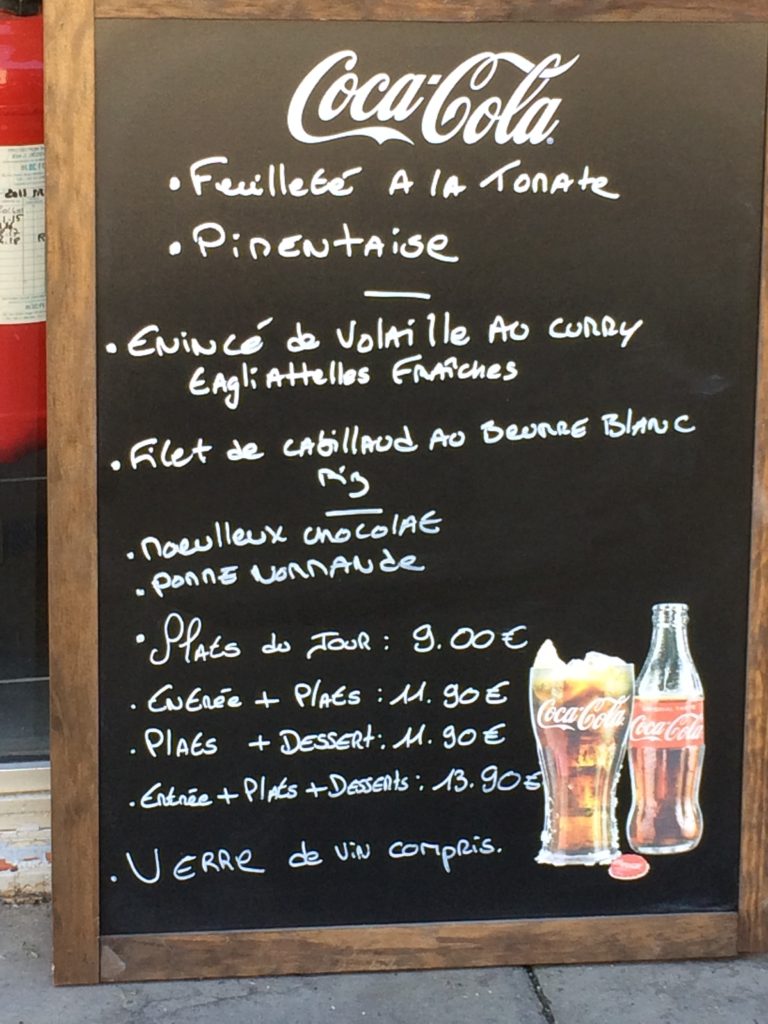 Coca-Cola
• Feuilleté A lA TOMATE
• PiMENtAiSE
• EMiNCÉ de VolAille AU CURRY
tAgliAttelles FRAîChes
• Filet de CAbillAUD AU BEURRE BlANC
Riz
• Moeulleux chocolAt
• POMME NORMANde
• PlAts du JOUR : 9.00€
• ENtRée + PlAts : 11.90€
• PlAts + DESSERt : 11.90€
• Entrée + PlAts + DESSERts : 13.90€
• VERRE de viN compris.
Coca-Cola
Coca-Cola